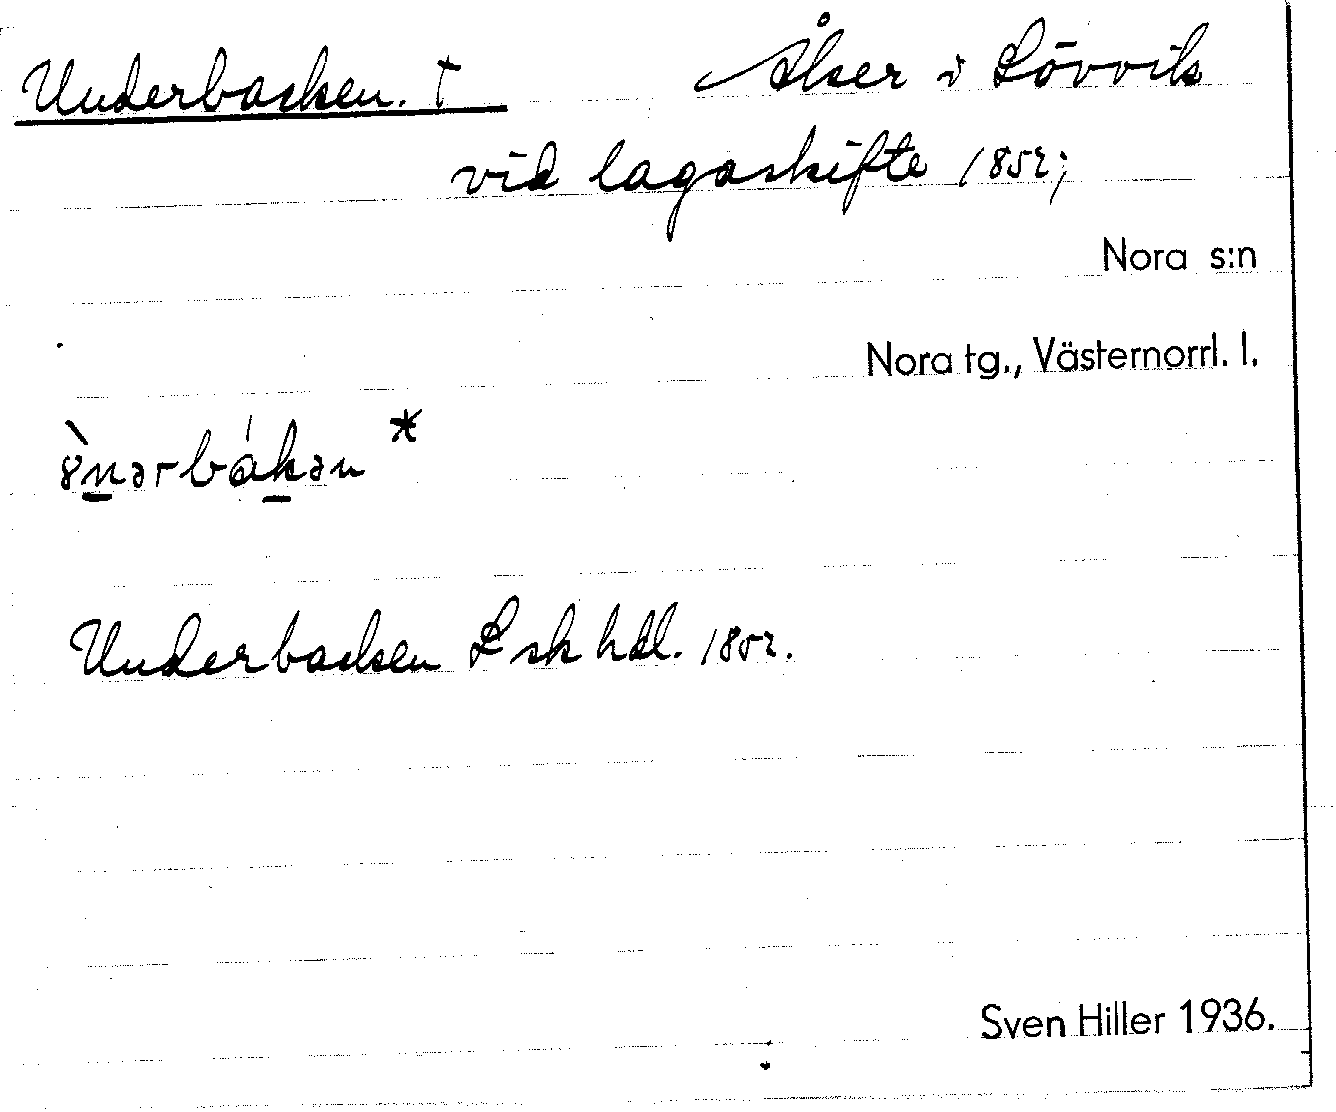 Underbacken. † Åker i Lövvik
vid lagaskifte 1852;
Nora s:n
Nora tg., Västernorrl. l.
ȣ̀nərbákən *
Underbacken L sk hdl. 1852.
Sven Hiller 1936.